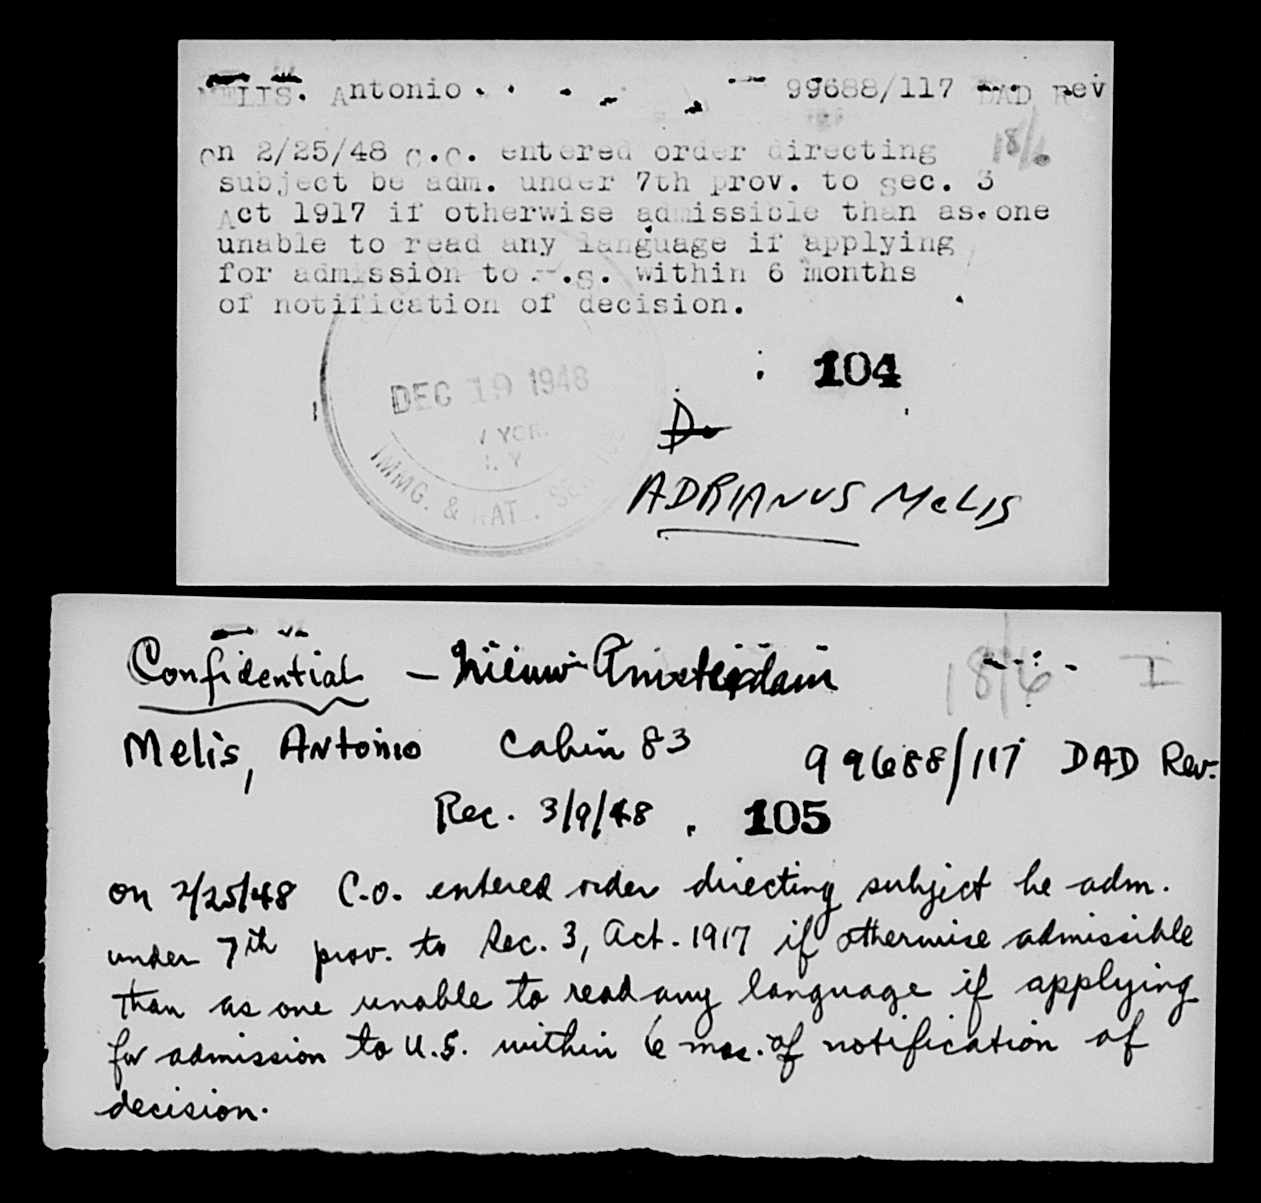 MELIS. Antonio 99688/117 DAD Rev
18/6
on 2/25/48 C.O. entered order directing
subject be adm. under 7th prov. to sec. 3
Act 1917 if otherwise admissible than as one
unable to read any language if applying
for admission to U.S. within 6 months
of notification of decision.
104
DEC 19 1948
N.Y.
IMMG. & NAT. SER
D.
ADRIANUS MeLIS
Confidential - Nieuw Amsterdam 18/6 I
Melis, Antonio Cabin 83 99688/117 DAD Rev.
Rec. 3/9/48 . 105
on 2/25/48 C.O. entered order directing subject be adm.
under 7th prov. to Sec. 3, Act. 1917 if otherwise admissible
than as one unable to read any language if applying
for admission to U.S. within 6 mos. of notification of
decision.